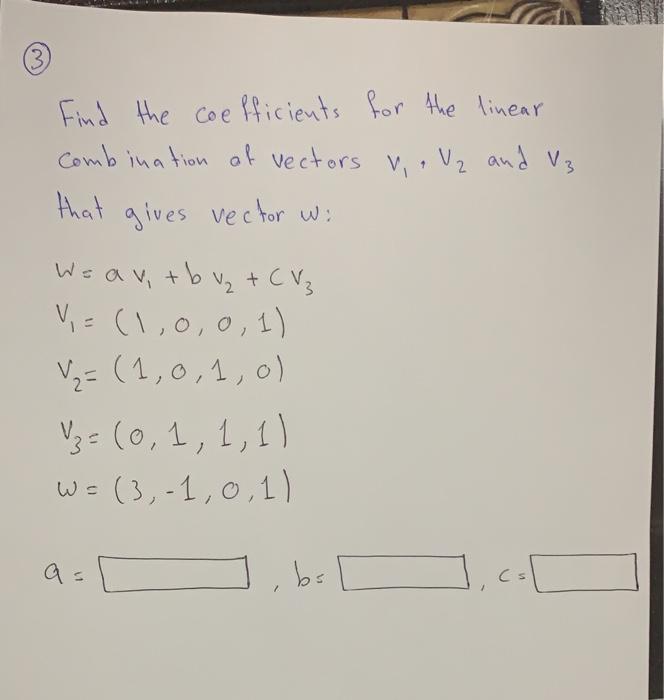 3
Find the coefficients for the linear
combination of vectors v₁, v₂ and v₃
that gives vector w:
w = a v₁ + b v₂ + c v₃
v₁ = (1, 0, 0, 1)
v₂ = (1, 0, 1, 0)
v₃ = (0, 1, 1, 1)
w = (3, -1, 0, 1)
a = , b = , c =